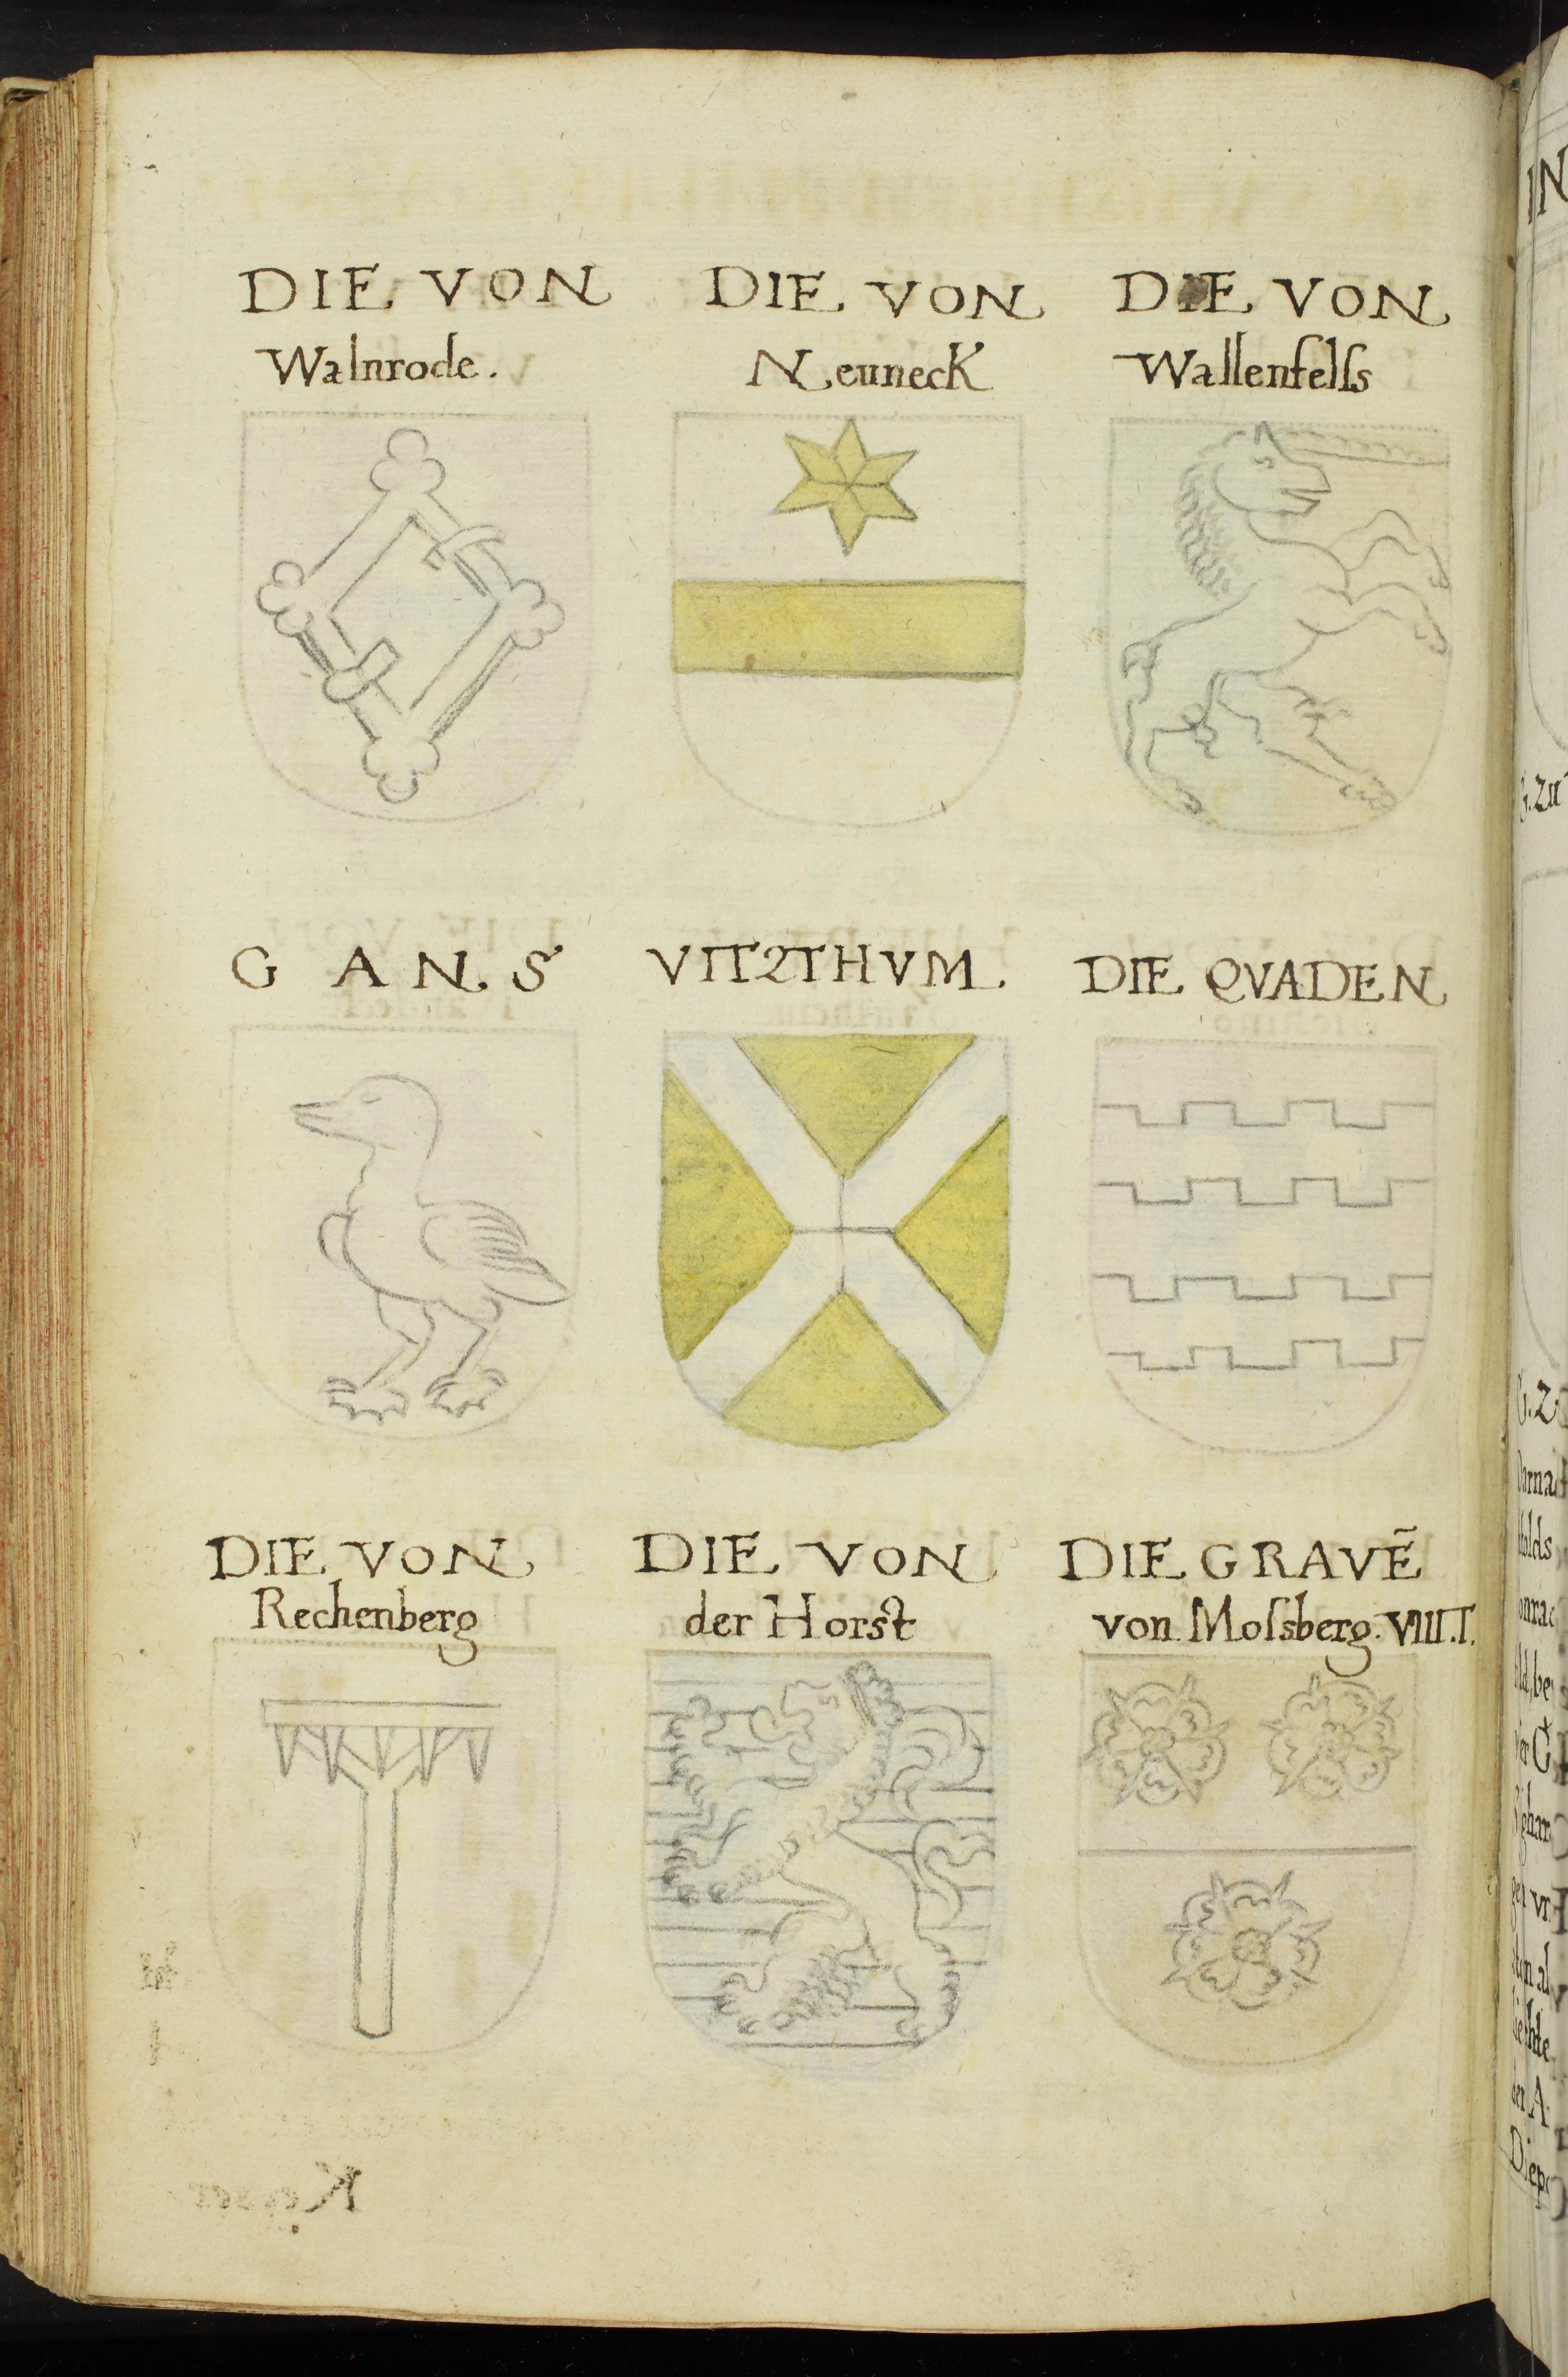 DIE VON
Walnrode.
DIE VON
Neuneck
DIE VON
Wallenfelſs
GANS
VITZTHVM.
DIE QVADEN
DIE VON
Rechenberg
DIE VON
der Horst
DIE GRAVẼ
von Moſsberg. VIII.T.